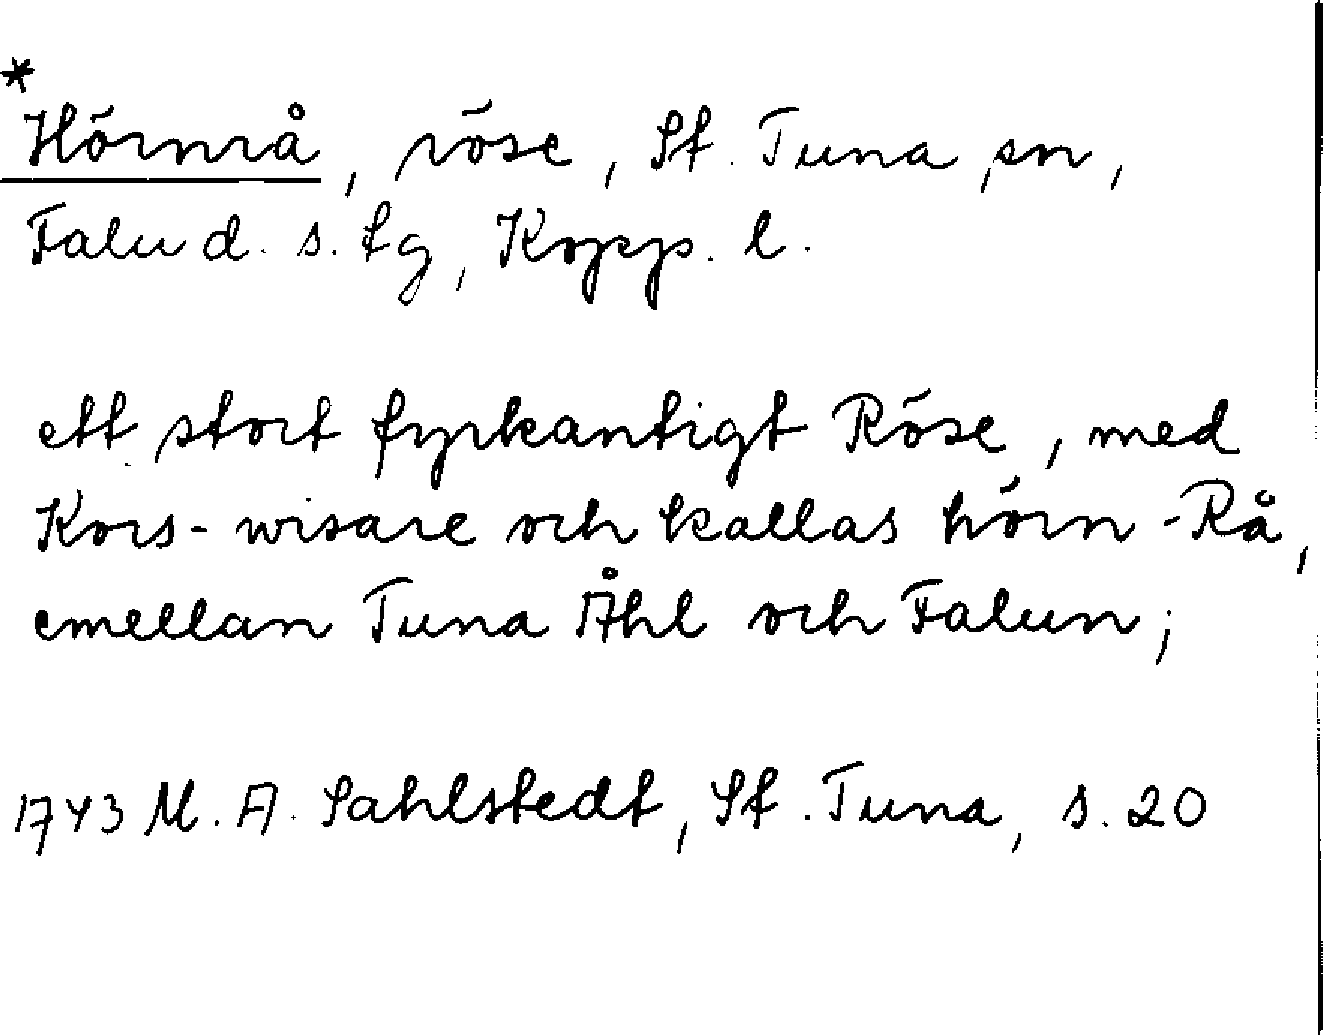 *
Hörnrå, röse, St. Tuna sn,
Falu d. s. tg, Kopp. l.
ett stort fyrkantigt Röse, med
Kors-wisare och kallas hörn-Rå,
emellan Tuna Åhl och Falun;
1743 M. A. Sahlstedt, St. Tuna, s. 20